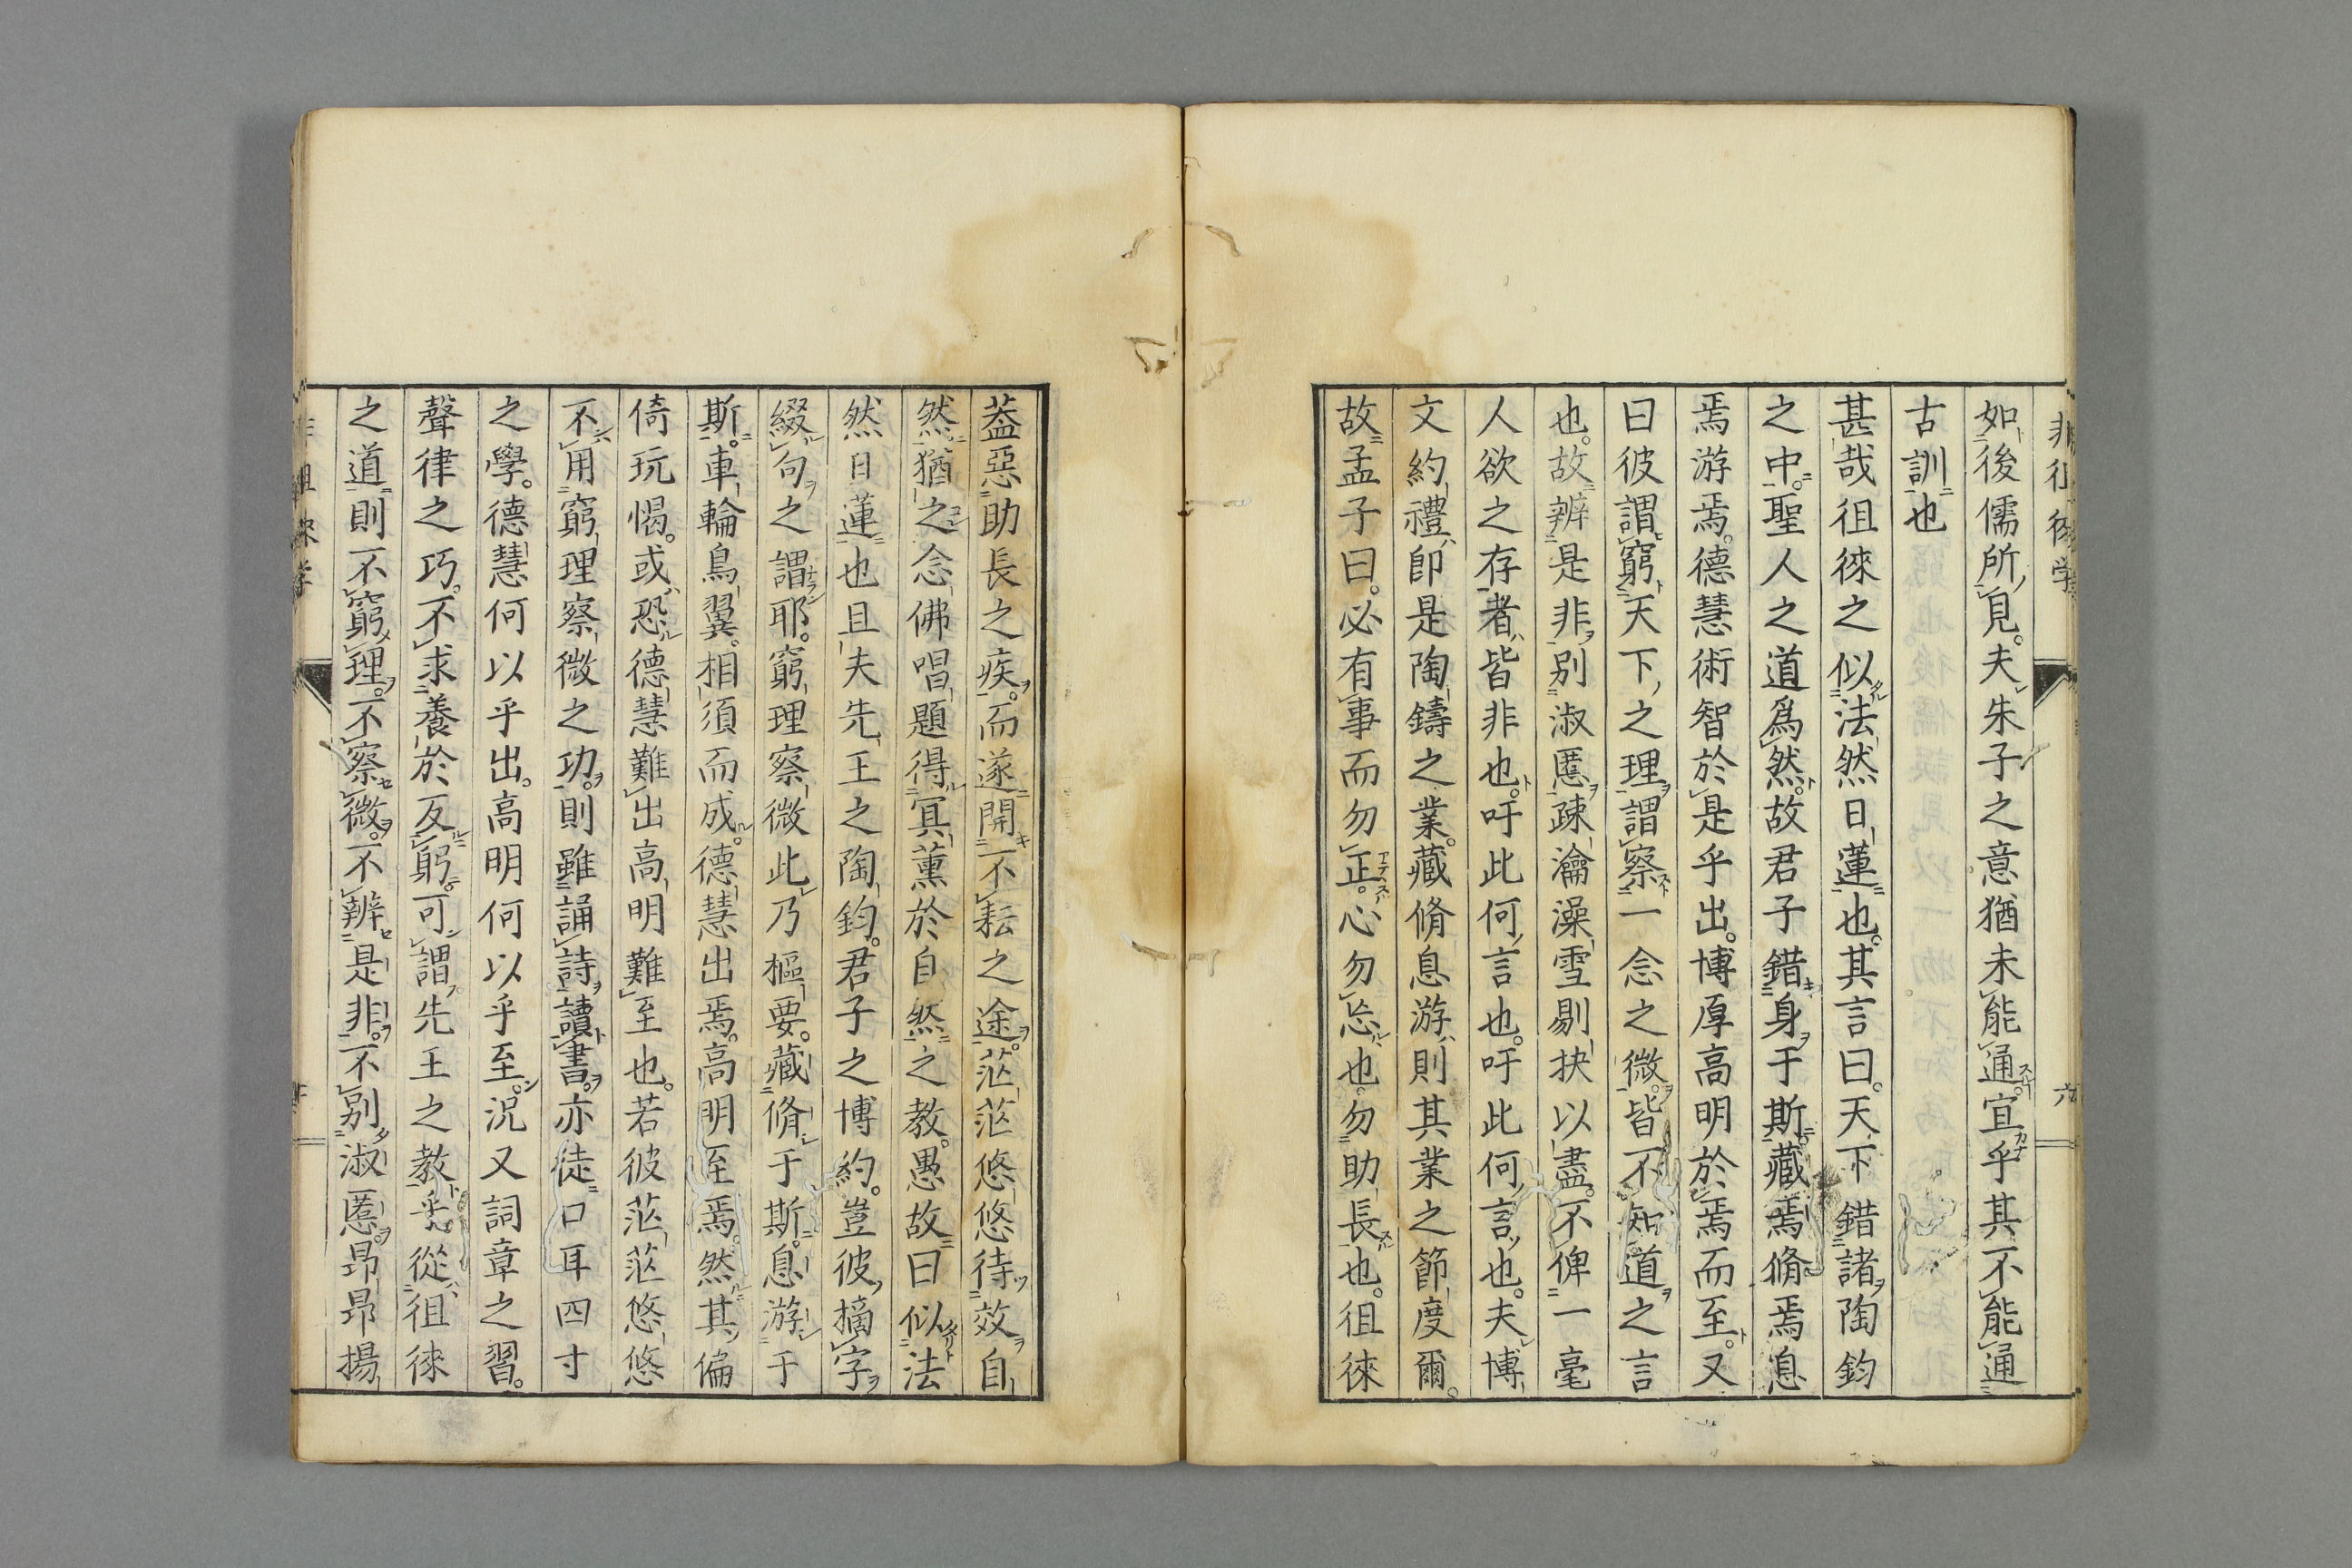 如後儒所見夫朱子之意猶未能通宜乎其不能通
古訓也
甚哉徂徠之似法然日蓮也其言曰天下錯諸陶鈞
之中聖人之道爲然故君子錯身于斯藏焉脩焉息
焉游焉德慧術智於是乎出博厚高明於焉而至又
曰彼謂窮天下之理謂察一念之微皆不知道之言
也故辨是非別淑慝疎瀹澡雪剔抉以盡不俾一毫
人欲之存者皆非也吁此何言也吁此何言也夫博
文約禮卽是陶鑄之業藏脩息游則其業之節度爾
故孟子曰必有事而勿正心勿忘也勿助長也徂徠
葢惡助長之疾而遂開不耘之途茫茫悠悠待效自
然猶之念佛唱題得冥薰於自然之教愚故曰似法
然日蓮也且夫先王之陶鈞君子之博約豈彼摘字
綴句之謂耶窮理察微此乃樞要藏脩于斯息游于
斯車輪鳥翼相須而成德慧出焉高明至焉然其偏
倚玩愒或恐德慧難出高明難至也若彼茫茫悠悠
不用窮理察微之功則雖誦詩讀書亦徒口耳四寸
之學德慧何以乎出高明何以乎至況又詞章之習
聲律之巧不求養於反躬可謂先王之教乎從徂徠
之道則不窮理不察微不辨是非不別淑慝昂昂揚